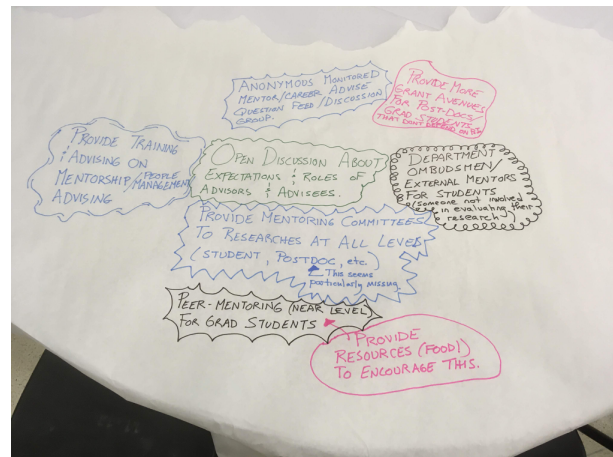 ANONYMOUS MONITORED
MENTOR/CAREER ADVISE
QUESTION FEED/DISCUSSION
GROUP.
PROVIDE MORE
GRANT AVENUES
FOR POST-DOCS/
GRAD STUDENTS
THAT DON'T DEPEND ON
PROVIDE TRAINING
& ADVISING ON
MENTORSHIP/PEOPLE
MANAGEMENT/
ADVISING
OPEN DISCUSSION ABOUT
EXPECTATIONS & ROLES OF
ADVISORS & ADVISEES.
DEPARTMENT
OMBUDSMEN/
EXTERNAL MENTORS
FOR STUDENTS
(someone not involved
in evaluating their
research)
PROVIDE MENTORING COMMITTEES
TO RESEARCHES AT ALL LEVELS
(STUDENT, POSTDOC, etc.)
This seems
particularly missing.
PEER-MENTORING (NEAR LEVEL)
FOR GRAD STUDENTS
PROVIDE
RESOURCES (FOOD!)
TO ENCOURAGE THIS.